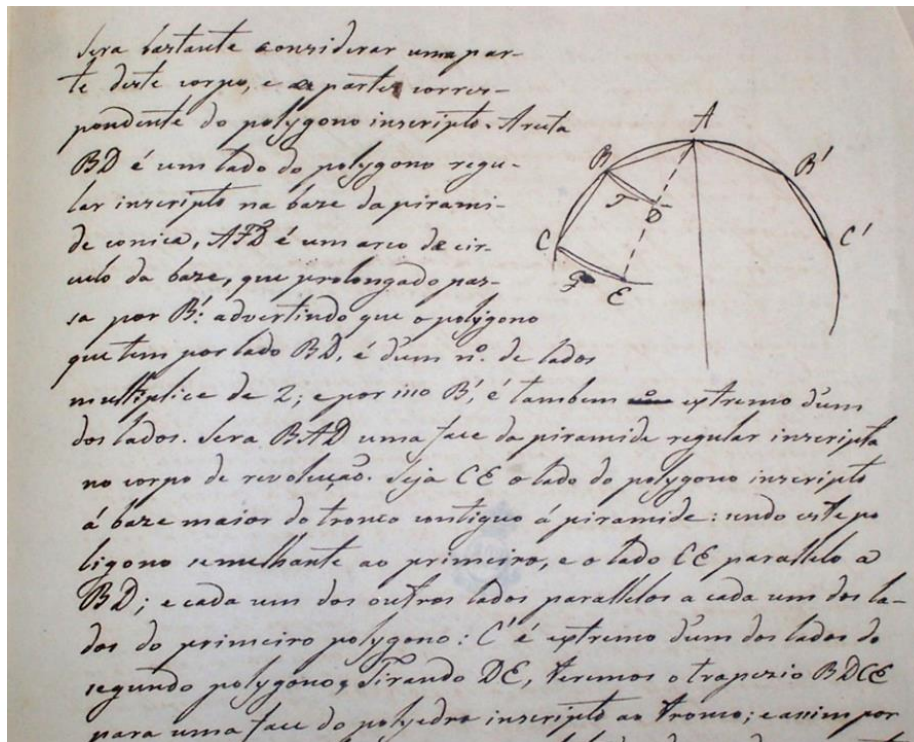 Sera bastante considerar uma par-
te deste corpo, e a parte corres-
pondente do polygono inscripto. A recta
BD é um lado do polygono regu-
lar inscripto na baze da pirami-
de conica, AFD é um arco de cir-
culo da baze, que prolongado pas-
sa por B': advertindo que o polygono
que tem por lado BD, é d'um nº. de lados
multiplice de 2; e por isso B', é tambem extremo d'um
dos lados. Sera BAD uma face da piramide regular inscripta
no corpo de revolução. Seja CE o lado do polygono inscripto
á baze maior do tronco contiguo á piramide: sendo este po
ligono semelhante ao primeiro, e o lado CE parallelo a
BD; e cada um dos outros lados parallelos a cada um dos la-
dos do primeiro polygono: C' é extremo d'um dos lados do
segundo polygono. Tirando DE, teremos o trapezio BDCE
para uma face do polyedro inscripto ao tronco; e assim por
A
B
B'
F
D
C
C'
E